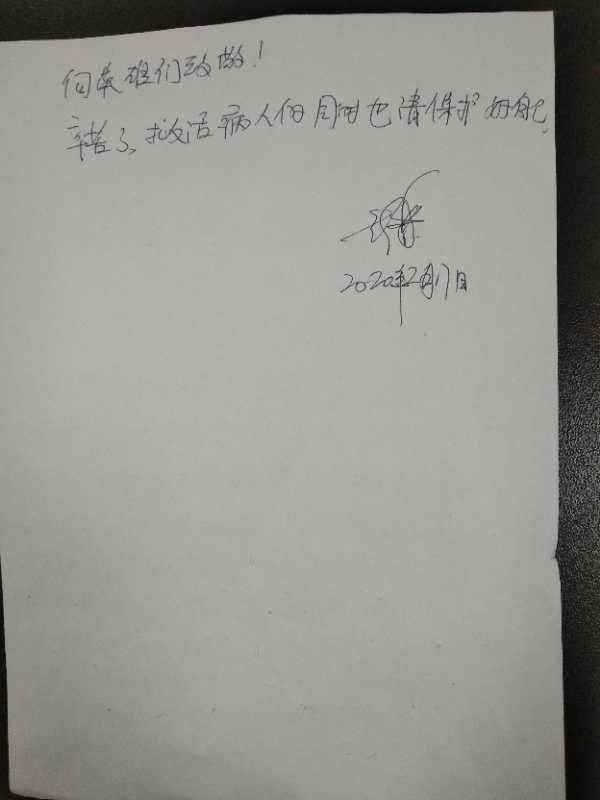 向英雄们致敬！
辛苦了，救治病人的同时也请保护好自己
2020年2月17日